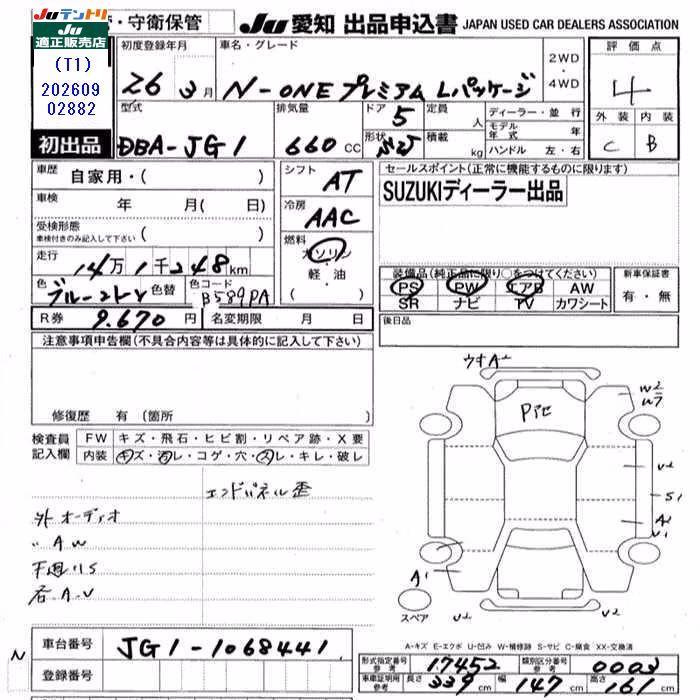 Juテントリ
適正販売店
(T1)
202609
02882
初出品
・守衛保管
Ju 愛知 出品申込書 JAPAN USED CAR DEALERS ASSOCIATION
初度登録年月
26 3月
車名・グレード
N-ONE プレミアム Lパッケージ
2WD
・
4WD
評価点
4
外装 内装
C B
型式
DBA-JG1
排気量
660 CC
ドア 5
形状
定員 人
積載 kg
ディーラー・並行
モデル年式 年
ハンドル 左・右
車歴 自家用・( )
車検 年 月( 日)
受検形態
車検付きのみ記入して下さい ( )
走行 14万1千248km
色 ブルー2トーン 色替 色コード B589PA
R券 9.670円 名変期限 月 日
シフト AT
冷房 AAC
燃料
ガソリン
・
軽・油
( )
セールスポイント(正常に機能するものに限ります)
SUZUKIディーラー出品
装備品(純正品に限り○をつけてください)
PS PW エアB AW
SR ナビ TV カワシート
新車保証書
有・無
後日品
注意事項申告欄(不具合内容等は具体的に記入して下さい)
修復歴 有(箇所 )
検査員
記入欄
FW キズ・飛石・ヒビ割・リペア跡・X要
内装 キズ・汚レ・コゲ・穴・スレ・キレ・破レ
エンドパネル歪
外オーディオ
〃 AW
下廻りS
各A.V
ウオA2
W2
U2
S1
A1
V1
A1
スペア
U2
U2
A-キズ E-エクボ U-凹み W-補修跡 S-サビ C-腐食 XX-交換済
N
車台番号 JG1-1068441
登録番号
形式指定番号 参考 17452 類別区分番号 参考 0003
車庫証明用 参考 長さ 339cm 幅 147cm 高さ 161cm